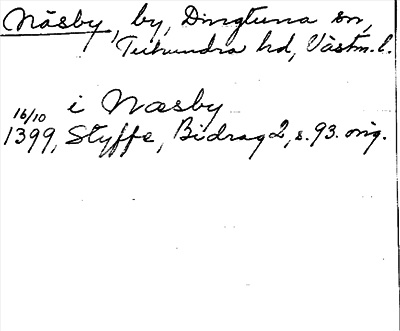 Näsby, by, Dingtuna sn,
Tuhundra hd, Västm. l.
i Næsby
16/10
1399, Styffe, Bidrag 2, s. 93. orig.